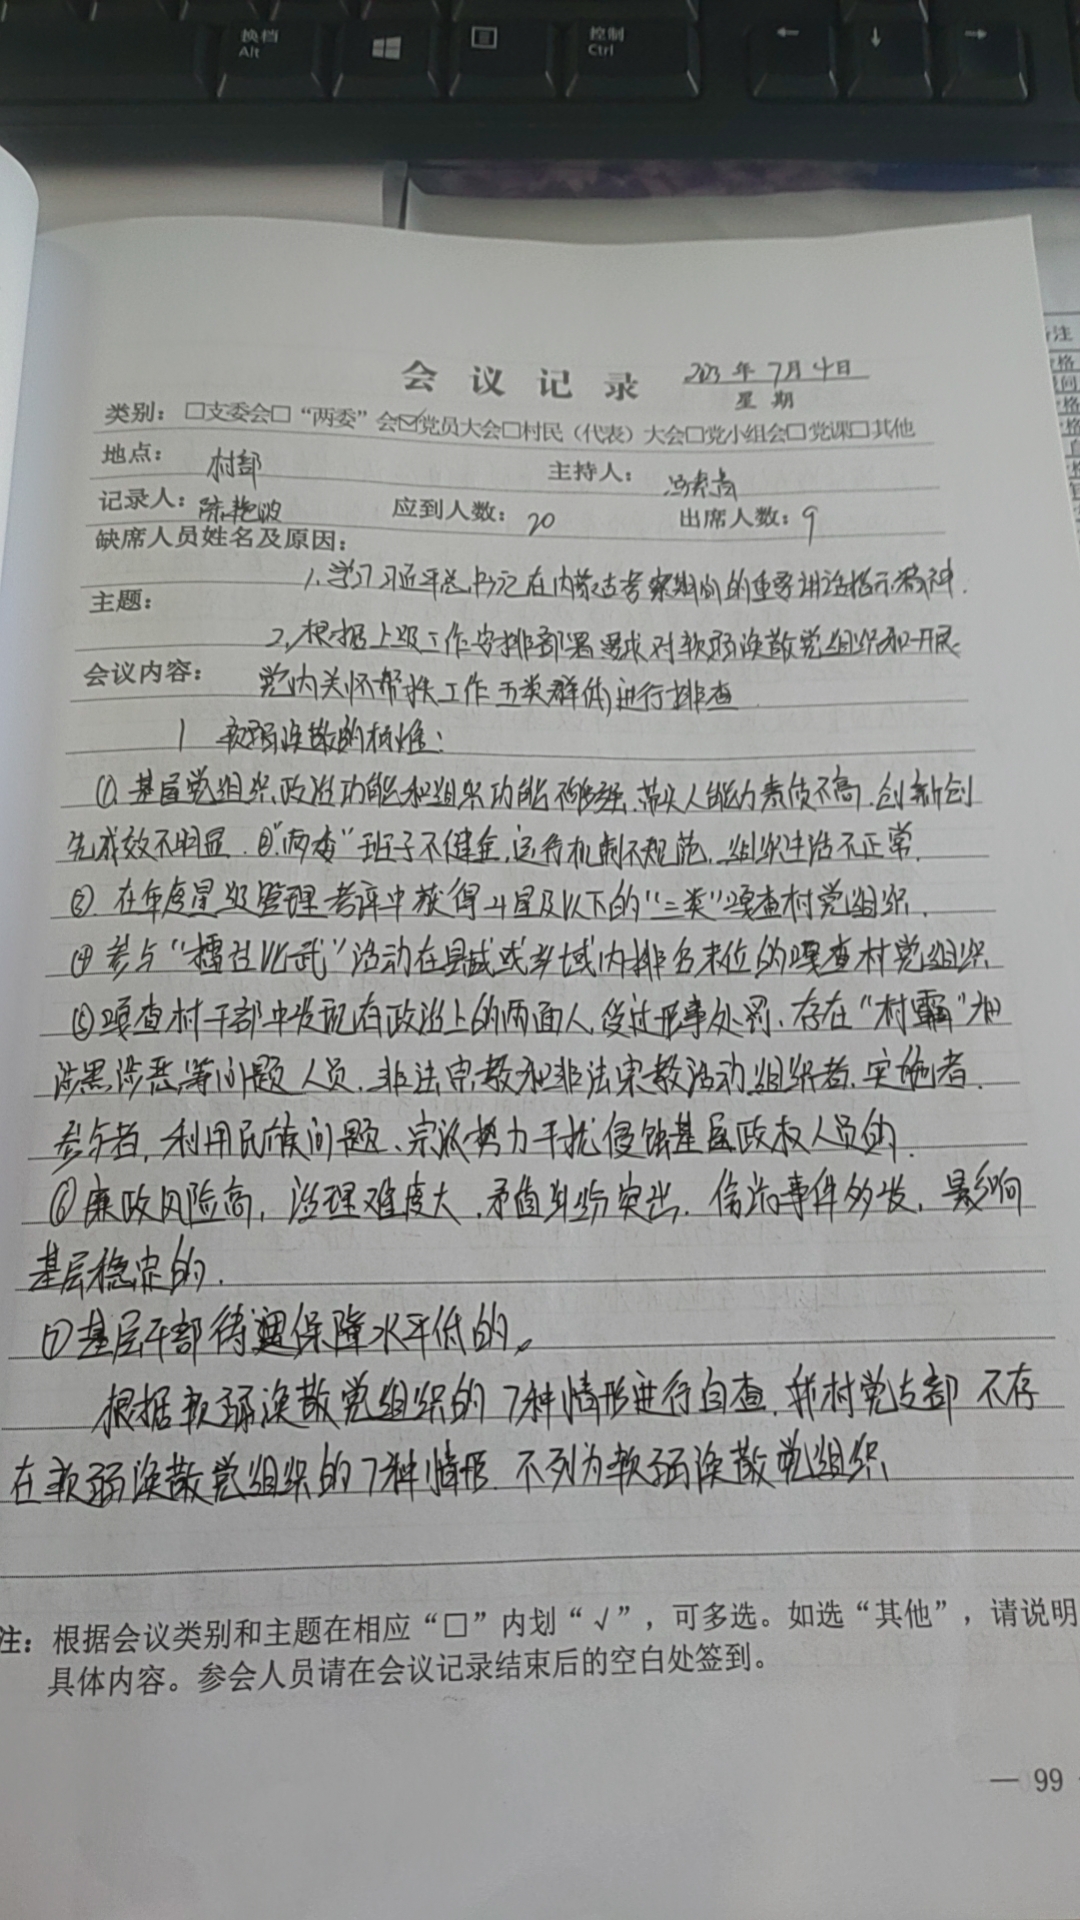 换档
Alt
控制
Ctrl
会议记录 2023年7月4日
星期
类别：□支委会□“两委”会☑党员大会□村民（代表）大会□党小组会□党课□其他
地点： 村部 主持人：
记录人：陈艳波 应到人数：20 出席人数：9
缺席人员姓名及原因：
1、学习习近平总书记在内蒙古考察期间的重要讲话指示精神.
主题：
2、根据上级工作安排部署要求对软弱涣散党组织和开展
会议内容： 党内关怀帮扶工作五类群体进行排查
1 软弱涣散的标准：
①基层党组织政治功能和组织功能不够强、带头人能力素质不高、创新创
先成效不明显.②“两委”班子不健全,运行机制不规范、组织生活不正常.
③.在年度星级管理考评中获得4星及以下的“三类”嘎查村党组织.
④参与“擂台比武”活动在县域或乡域内排名末位的嘎查村党组织
⑤嘎查村干部中发现有政治上的两面人,受过刑事处罚、存在“村霸”和
涉黑涉恶等问题人员、非法宗教和非法宗教活动组织者、实施者.
参与者,利用民族问题、宗派势力干扰侵蚀基层政权人员的.
⑥廉政风险高,治理难度大,矛盾纠纷突出、信访事件多发,影响
基层稳定的.
⑦基层干部待遇保障水平低的。
根据软弱涣散党组织的7种情形进行自查,我村党支部不存
在软弱涣散党组织的7种情形.不列为软弱涣散党组织
注：根据会议类别和主题在相应“□”内划“√”，可多选。如选“其他”，请说明
具体内容。参会人员请在会议记录结束后的空白处签到。
— 99